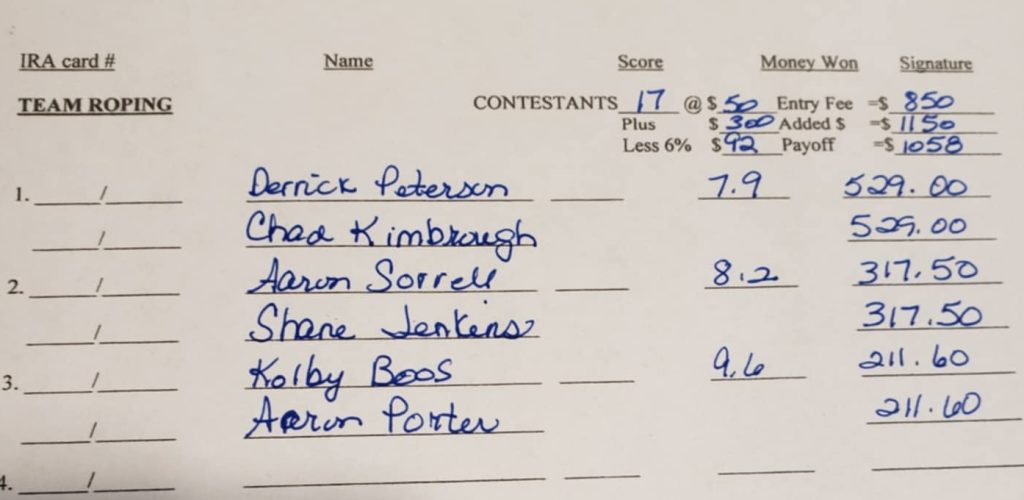 IRA card # Name Score Money Won Signature
TEAM ROPING CONTESTANTS 17 @ $ 50 Entry Fee =$ 850
Plus $ 300 Added $ =$ 1150
Less 6% $ 92 Payoff =$ 1058
1. / Derrick Peterson 7.9 529.00
/ Chad Kimbrough 529.00
2. / Aaron Sorrell 8.2 317.50
/ Shane Jenkins 317.50
3. / Kolby Boos 9.6 211.60
/ Aaron Porter 211.60
4. /